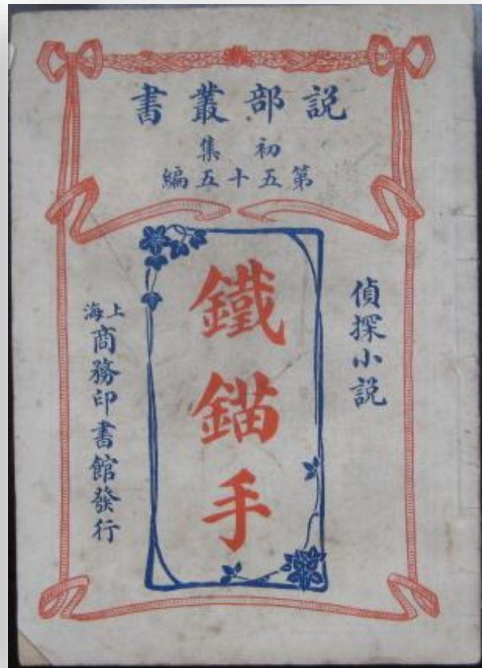 説部叢書
初集
第五十五編
偵探小説
鐵錨手
上海商務印書館發行